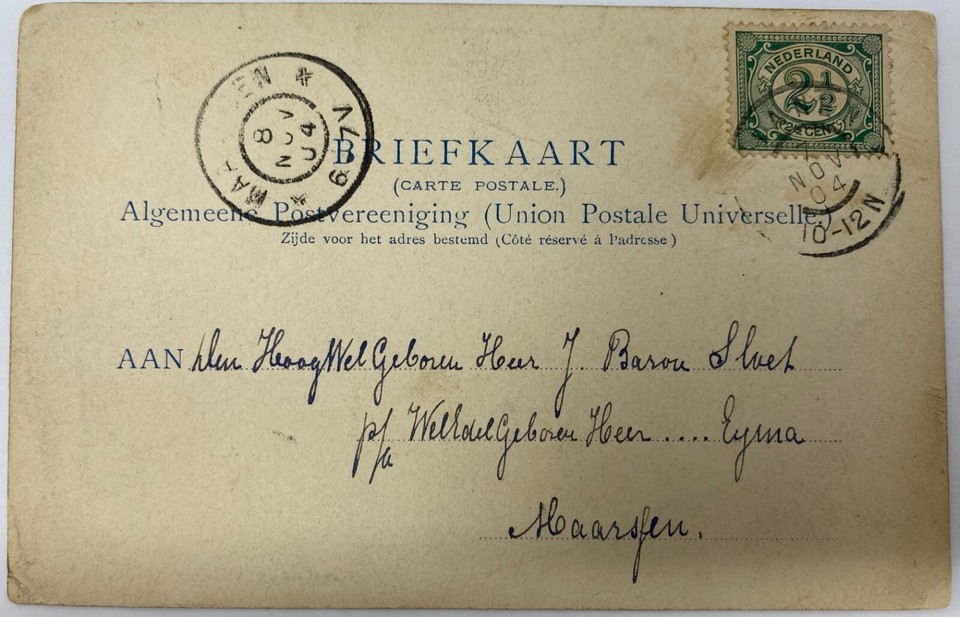 NEDERLAND
2½
(2½ CENT)
MAA EN
8
NOV
04
6-7V
NOV
04
10-12N
BRIEFKAART
(CARTE POSTALE.)
Algemeene Postvereeniging (Union Postale Universelle.)
Zijde voor het adres bestemd (Côté réservé à l'adresse)
AAN Den HoogWelGeboren Heer J. Baron Sloet
p/a WelEdelGeboren Heer .... Eyma
Maarssen.